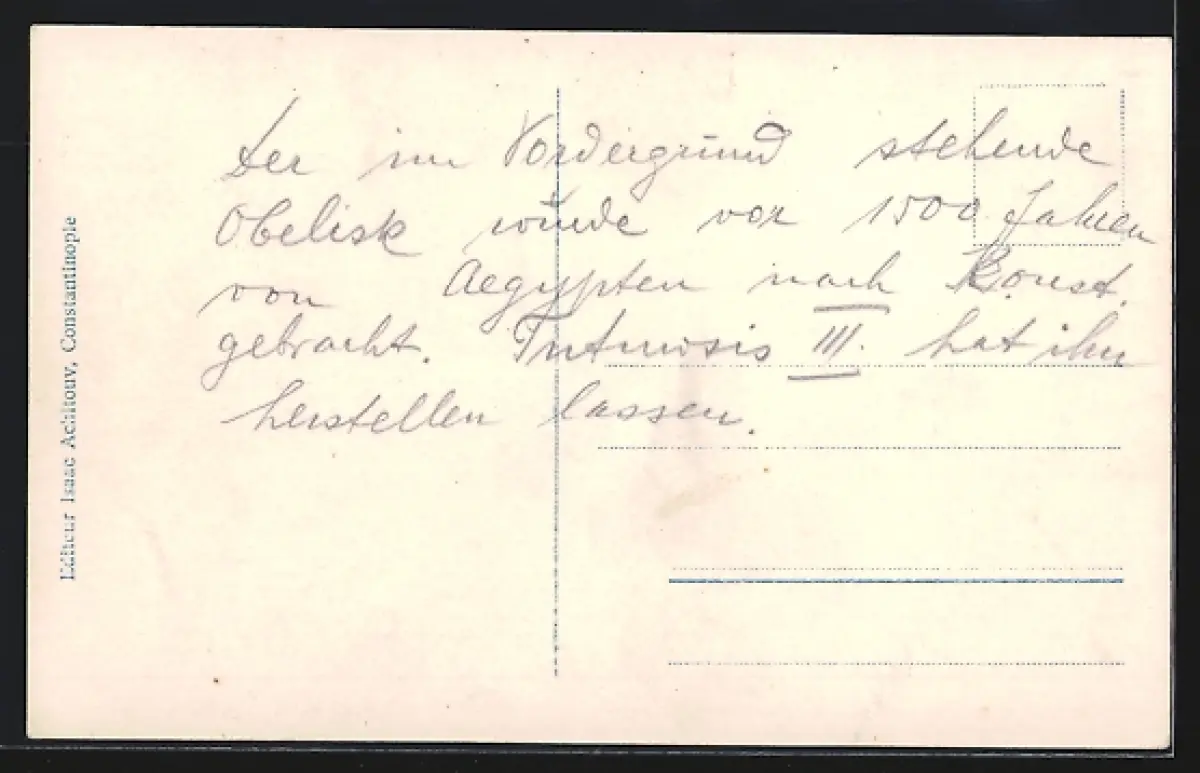 Der im Vordergrund stehende
Obelisk wurde vor 1500 Jahren
von Aegypten nach Konst.
gebracht. Tutmosis III. hat ihn
herstellen lassen.
Editeur Isaac Achitouv, Constantinople